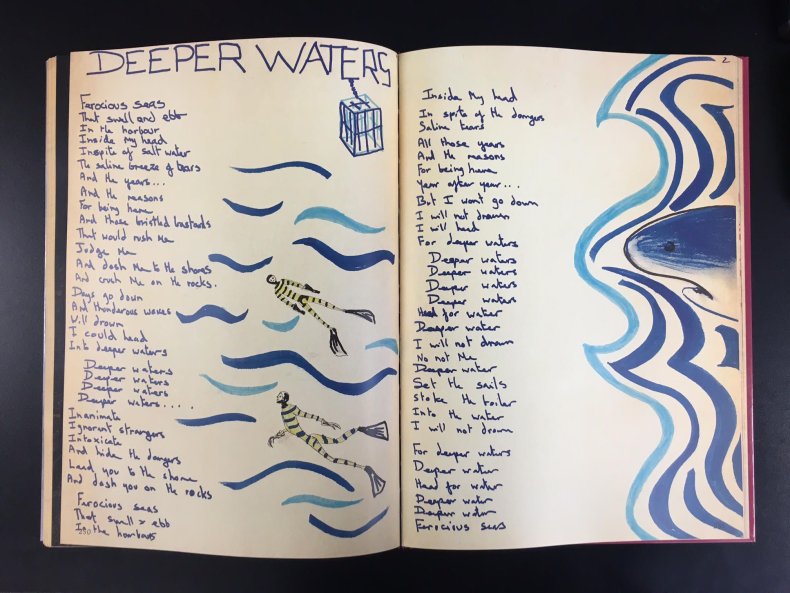 DEEPER WATERS
Ferocious seas
That swell and ebb
In the harbour
Inside my head
Inspite of salt water
The saline breeze of tears
And the years...
And the reasons
For being here
And those bristled bastards
That would rush me
Judge me
And dash me to the shores
And crush me on the rocks.
Days go down
And thonderous waves
Will drown
I could head
Into deeper waters
Deeper waters
Deeper waters
Deeper waters
Deeper waters.....
Inanimate
Ignorant strangers
Intoxicate
And hide the dangers
Lead you to the shore
And dash you on the rocks
Ferocious seas
That swell > ebb
In the harbours
2
Inside my head
In spite of the dangers
Saline tears
All those years
And the reasons
For being here
Year after year...
But I wont go down
I will not drown
I will head
For deeper waters
Deeper waters
Deeper waters
Deeper waters
Deeper waters
Head for water
Deeper water
I will not drown
No not me
Deeper water
Set the sails
stoke the boiler
Into the water
I will not drown
For deeper waters
Deeper water
Head for water
Deeper water
Deeper water
Ferocious seas